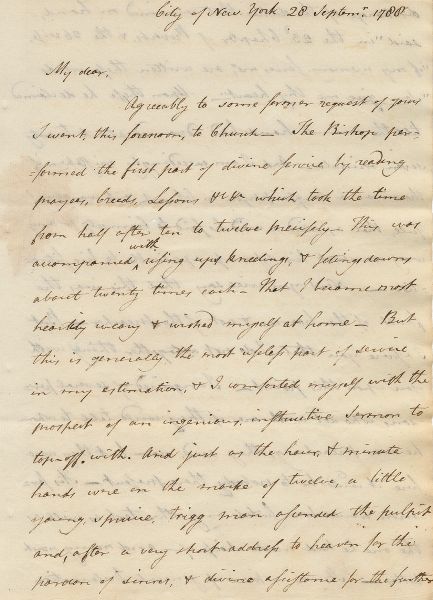 City of New York 28 Septemr. 1788
My dear,
Agreeably to some former request of yours
I went, this forenoon, to Church — The Bishop per-
-formed the first part of divine service by reading
prayers, Creeds, Lessons &c &c which took the time
from half after ten to twelve precisely — This was
accompanied, with rising ups, kneelings, & setings downs
about twenty times each — That I became most
heartily weary & wished myself at home — But
this is generally the most useless part of service
in my estimation, & I comforted myself with the
prospect of an ingenious, instructive sermon to
top off with. And just as the hour, & minute
hands were on the marke of twelve, a little
young, spruce, trigg man ascended the pulpit
and, after a very short address to heaven for the
pardon of sinners, & divine assistance for the further